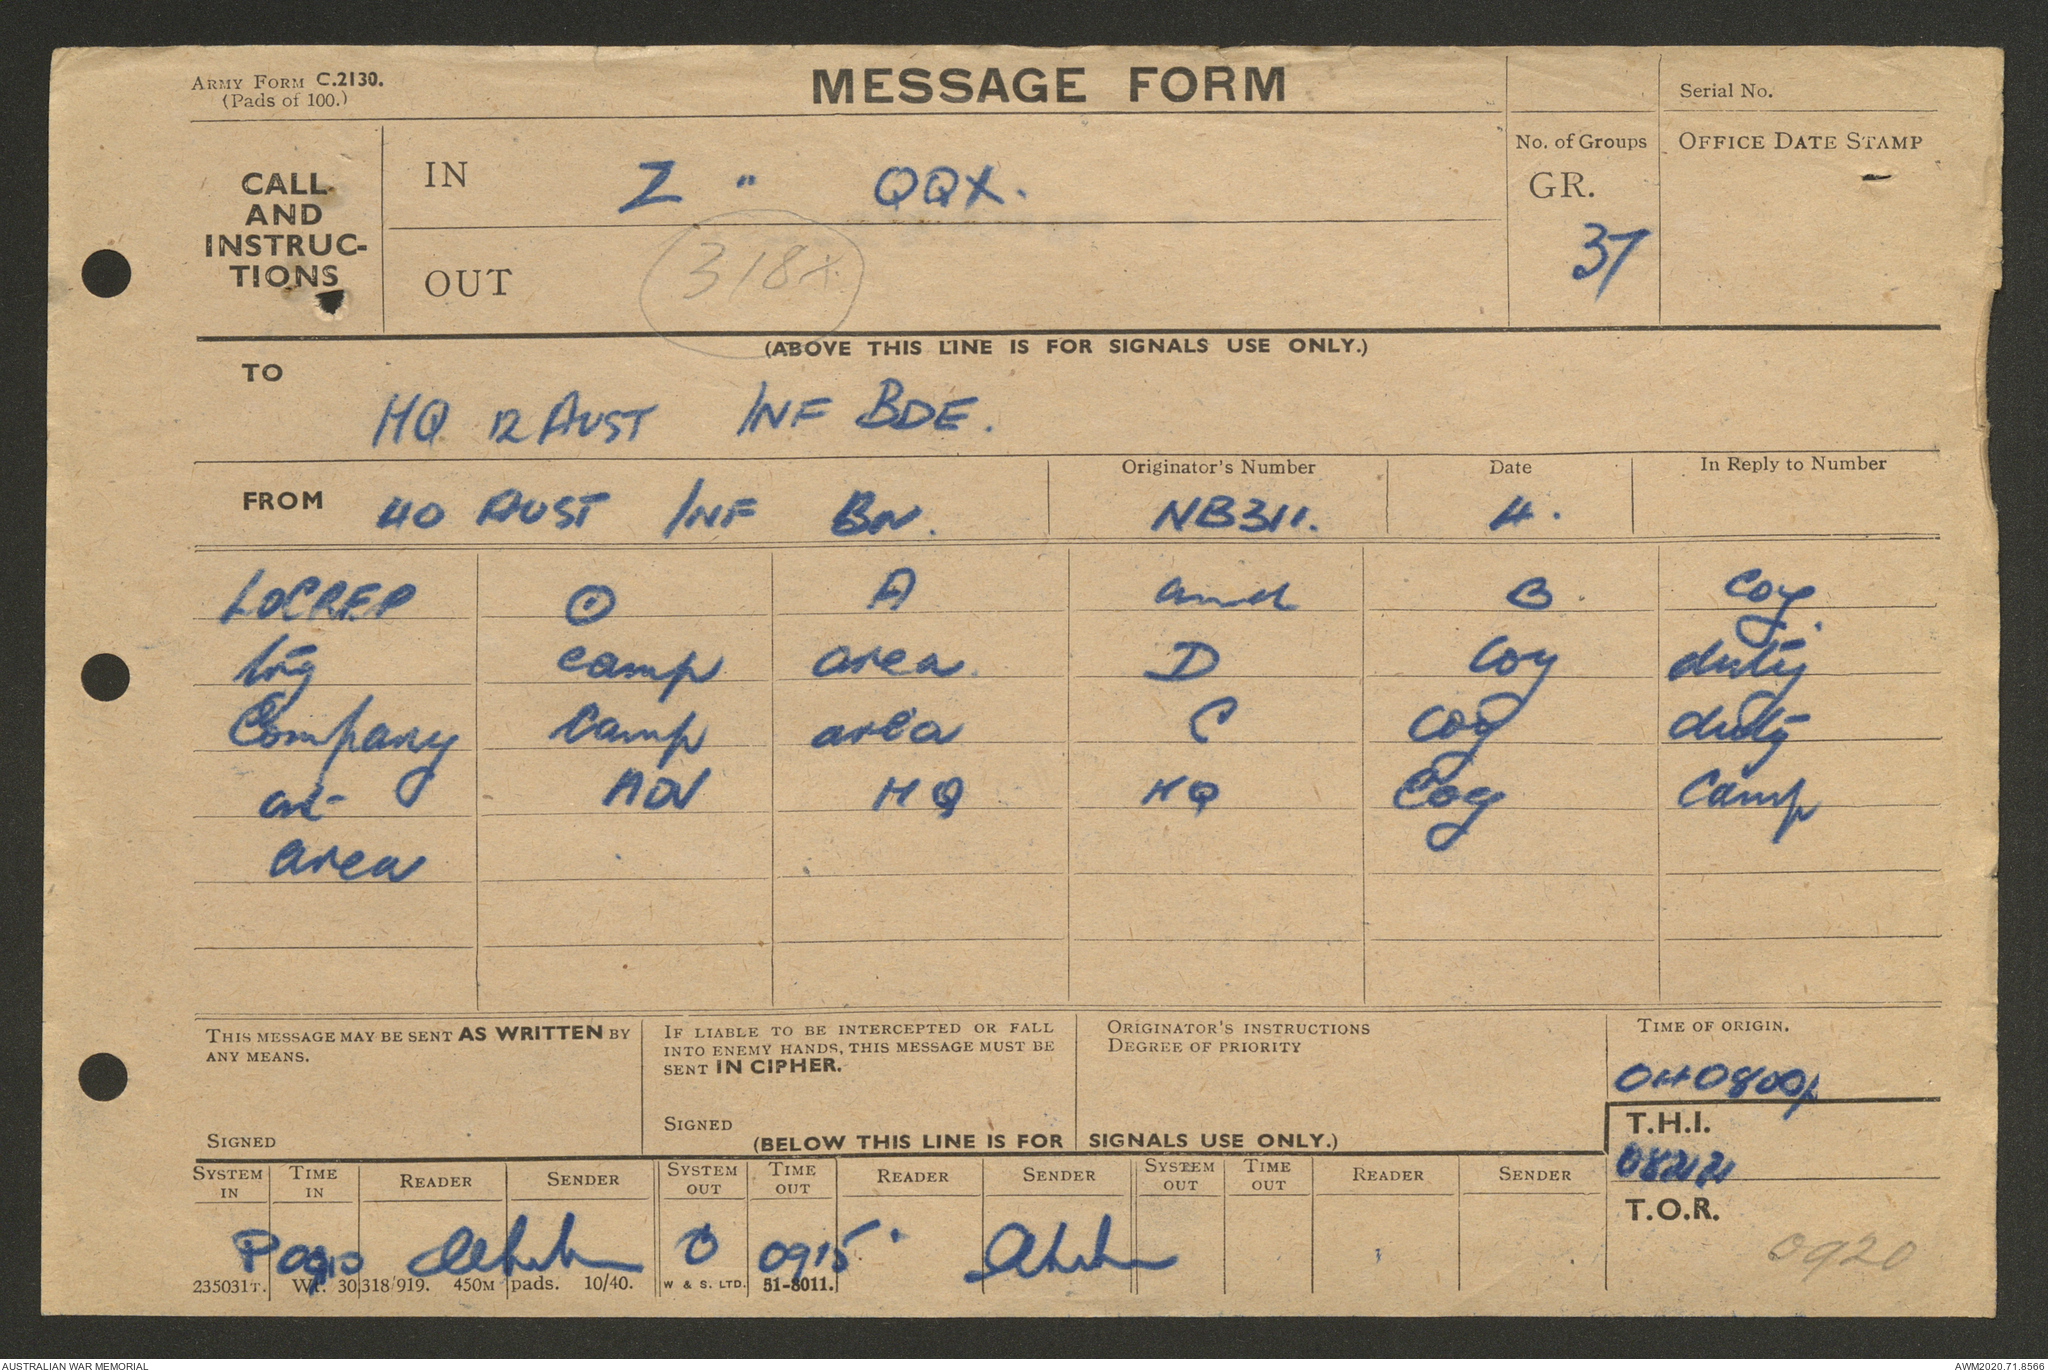 ARMY FORM C.2130.
(Pads of 100.)
MESSAGE FORM
Serial No.
CALL AND INSTRUC-TIONS
IN Z " QQX.
OUT 318X.
No. of Groups
GR.
37
OFFICE DATE STAMP
(ABOVE THIS LINE IS FOR SIGNALS USE ONLY.)
TO
HQ 12 AUST INF BDE.
FROM 40 AUST INF BN.
Originator's Number
NB311.
Date
4.
In Reply to Number
LOCREP ⊙ A and B. Coy.
trg camp area. D Coy duty
Company camp area C Coy duty
at ADV HQ HQ Coy camp
area
THIS MESSAGE MAY BE SENT AS WRITTEN BY
ANY MEANS.
SIGNED
IF LIABLE TO BE INTERCEPTED OR FALL
INTO ENEMY HANDS, THIS MESSAGE MUST BE
SENT IN CIPHER.
SIGNED
ORIGINATOR'S INSTRUCTIONS
DEGREE OF PRIORITY
TIME OF ORIGIN.
040800
T.H.I.
T.O.R.
0920
(BELOW THIS LINE IS FOR SIGNALS USE ONLY.)
SYSTEM IN TIME IN READER SENDER SYSTEM OUT TIME OUT READER SENDER SYSTEM OUT TIME OUT READER SENDER
P 0910 0915
235031T. Wt. 30,318/919. 450M pads. 10/40. W & S. LTD. 51-8011.
AUSTRALIAN WAR MEMORIAL
AWM2020.71.8566